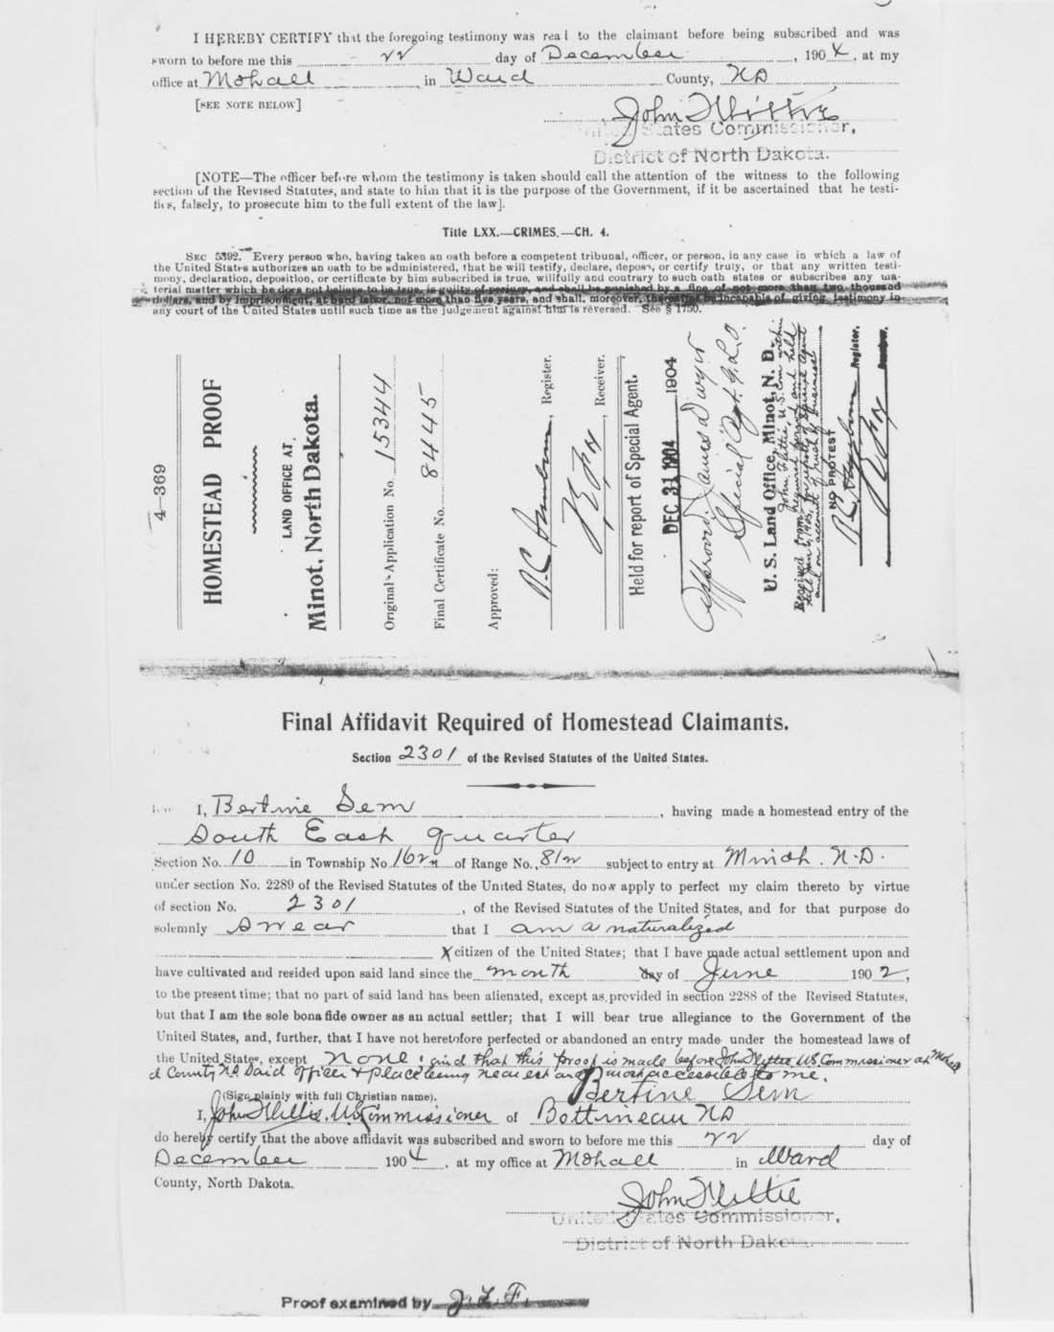 I HEREBY CERTIFY that the foregoing testimony was read to the claimant before being subscribed and was
sworn to before me this 22 day of December, 1904, at my
office at Mohall in Ward County, ND
[SEE NOTE BELOW]
John
United States Commissioner,
District of North Dakota.
[NOTE—The officer before whom the testimony is taken should call the attention of the witness to the following
section of the Revised Statutes, and state to him that it is the purpose of the Government, if it be ascertained that he testi-
fies, falsely, to prosecute him to the full extent of the law].
Title LXX.—CRIMES.—CH. 4.
SEC 5392. Every person who, having taken an oath before a competent tribunal, officer, or person, in any case in which a law of
the United States authorizes an oath to be administered, that he will testify, declare, depose, or certify truly, or that any written testi-
mony, declaration, deposition, or certificate by him subscribed is true, willfully and contrary to such oath states or subscribes any ma-
terial matter which he does not believe to be true, is guilty of perjury, and shall be punished by a fine of not more than two thousand
dollars, and by imprisonment, at hard labor, not more than five years, and shall, moreover, thereafter be incapable of giving testimony in
any court of the United States until such time as the judgement against him is reversed. See § 1750.
4—369
HOMESTEAD PROOF
LAND OFFICE AT
Minot, North Dakota.
Original Application No. 15344
Final Certificate No. 8445
Approved:
Register.
Receiver.
Held for report of Special Agent.
DEC 31 1904 1904
Approved. James Dwyer
Special Agt. G.L.O.
U. S. Land Office, Minot, N. D.
Received from
NO PROTEST
Register.
Final Affidavit Required of Homestead Claimants.
Section 2301 of the Revised Statutes of the United States.
I, Bertine Sem, having made a homestead entry of the
South East quarter
Section No. 10 in Township No 162N of Range No. 81W subject to entry at Minot. N.D.
under section No. 2289 of the Revised Statutes of the United States, do now apply to perfect my claim thereto by virtue
of section No. 2301, of the Revised Statutes of the United States, and for that purpose do
solemnly Swear that I am a naturalized
X citizen of the United States; that I have made actual settlement upon and
have cultivated and resided upon said land since the month day of June 1902,
to the present time; that no part of said land has been alienated, except as provided in section 2288 of the Revised Statutes,
but that I am the sole bona fide owner as an actual settler; that I will bear true allegiance to the Government of the
United States, and, further, that I have not heretofore perfected or abandoned an entry made under the homestead laws of
the United States, except none; and that this proof is made before John US Commissioner at Mohall
d County ND Said officer & place being nearest and most accessible to me.
Bertine Sem
(Sign plainly with full Christian name).
I, John U.S. Commissioner of Bottineau ND
do hereby certify that the above affidavit was subscribed and sworn to before me this 22 day of
December 1904, at my office at Mohall in Ward
County, North Dakota.
John
United States Commissioner,
District of North Dakota.
Proof examined by J. L. F.